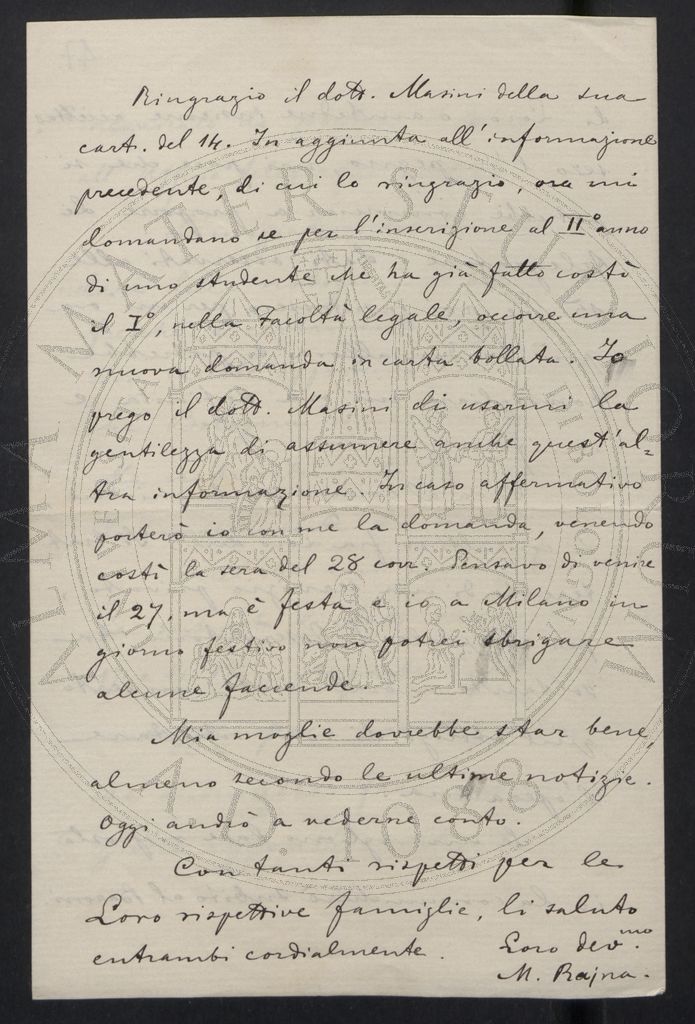 Ringrazio il dott. Masini della sua
cart. del 14. In aggiunta all'informazione
precedente, di cui lo ringrazio, ora mi
domandano se per l'inscrizione al II° anno
di uno studente che ha già fatto costì
il I°, nella Facoltà legale, occorre una
nuova domanda in carta bollata. Io
prego il dott. Masini di usarmi la
gentilezza di assumere anche quest'al=
tra informazione. In caso affermativo
porterò io con me la domanda, venendo
costì la sera del 28 corr. Pensavo di venire
il 27, ma è festa e io a Milano in
giorno festivo non potrei sbrigare
alcune faccende.
Mia moglie dovrebbe star bene,
almeno secondo le ultime notizie.
Oggi andrò a vederne conto.
Con tanti rispetti per le
Loro rispettive famiglie, li saluto
entrambi cordialmente. Loro dev.mo
M. Rajna.
ALMA MATER STUDIORUM
A.D. 1088